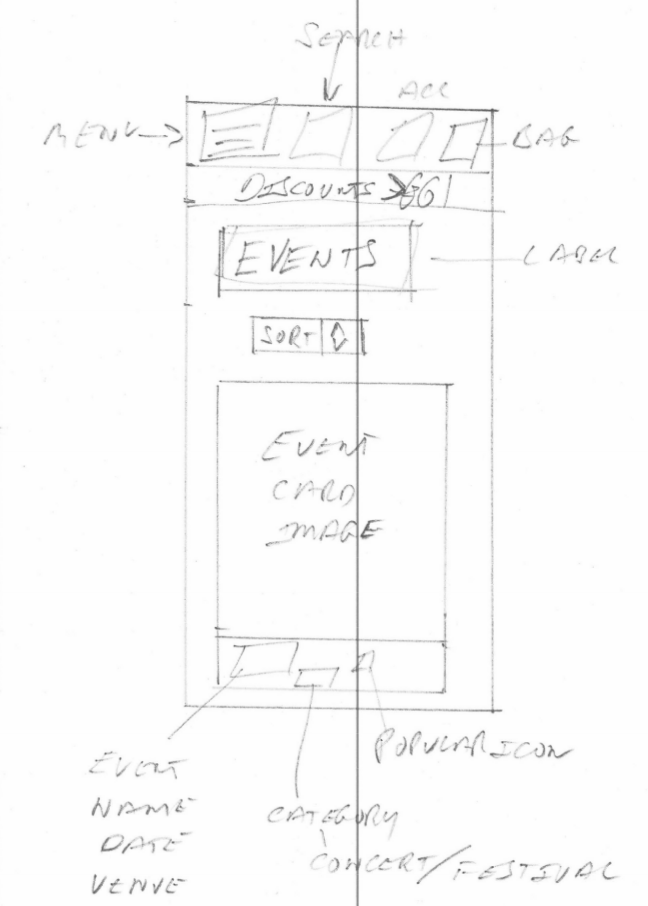 SEARCH
ACC
MENU
BAG
DISCOUNTS
EVENTS
LABEL
SORT
EVENT
CARD
IMAGE
POPULAR ICON
EVENT
NAME
DATE
VENUE
CATEGORY
CONCERT/FESTIVAL